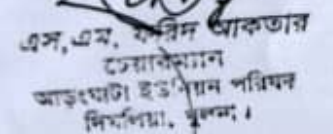 এস,এম, ফরিদ আকতার
চেয়ারম্যান
আড়ংঘাটা ইউনিয়ন পরিষদ
দিঘলিয়া, খুলনা।